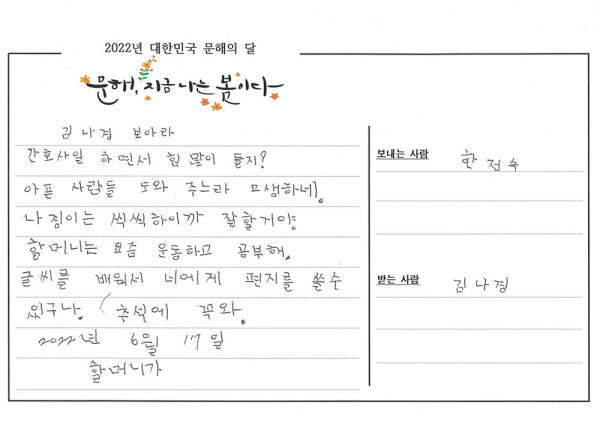 2022년 대한민국 문해의 달
문해, 지금 나는 봄이다
김나경 보아라
간호사일 하면서 힘 많이 들지?
아픈 사람들 도와 주느라 고생하네!
나경이는 씩씩하이까 잘할거야.
할머니는 요즘 운동하고 공부해.
글씨를 배워서 너에게 편지를 쓸수
있구나. 추석에 꼭와.
2022년 6월 17일
할머니가
보내는 사람 한전숙
받는 사람 김나경